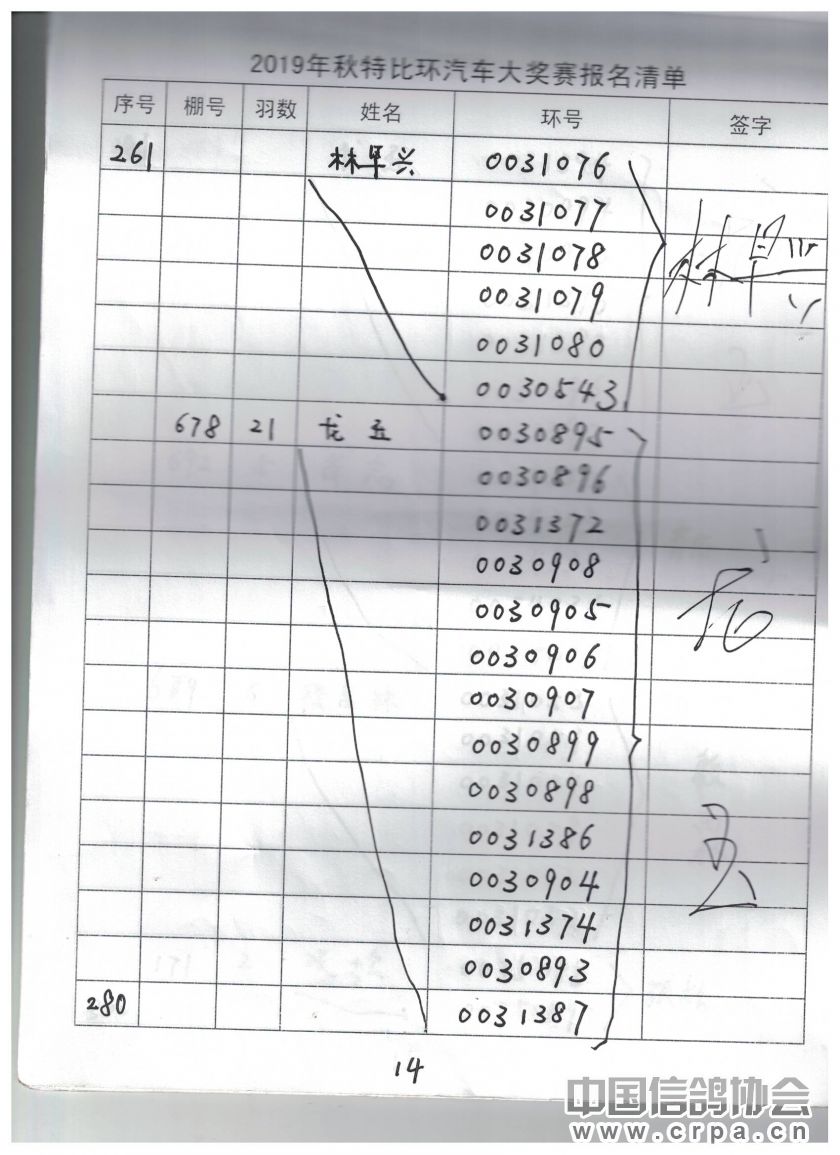 2019年秋特比环汽车大奖赛报名清单
序号 棚号 羽数 姓名 环号 签字
261 林早兴 0031076
0031077
0031078 林早兴
0031079
0031080
0030543
678 21 龙五 0030895
0030896
0031372
0030908
0030905 龙
0030906
0030907
0030899
0030898
0031386
0030904 五
0031374
0030893
280 0031387
14
中国信鸽协会
www.crpa.cn